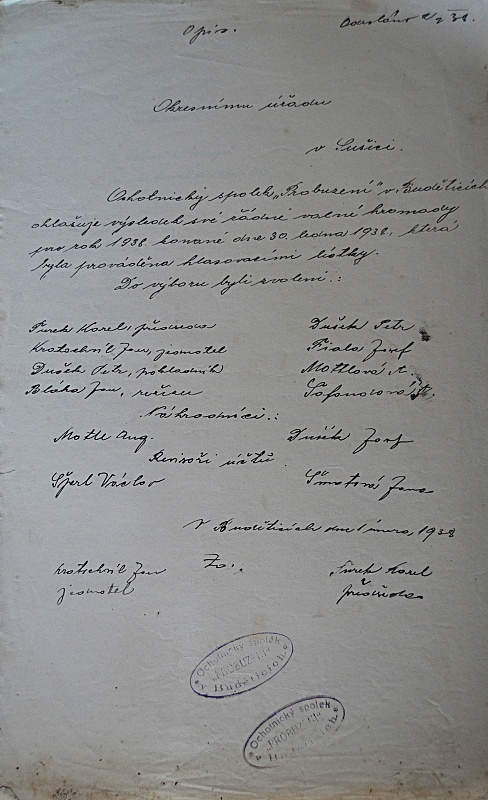 Opis.
Odesláno 2/2 38.
Okresnímu úřadu
v Sušici.
Ochotnický spolek „Probuzení" v Buděticích
ohlašuje výsledek své řádné valné hromady
pro rok 1938 konané dne 30. ledna 1938, která
byla prováděna hlasovacími lístky.
Do výboru byli zvoleni.:
Turek Karel, předseda
Dušek Petr
Kratochvíl Jan, jednatel
Fiala Josef
Dušek Petr, pokladník
Mottlová A.
Bláha Jan, režisér
Náhradníci.:
Motle Aug.
Dušek Josef
Revisoři účtů
Šperl Václav
Šmatová Jana
V Buděticích dne 1 února, 1938
Kratochvíl Jan
Za.:
Turek Karel
jednatel
předseda
Ochotnický spolek
„PROBUZENÍ"
v Buděticích.
Ochotnický spolek
„PROBUZENÍ"
v Buděticích.